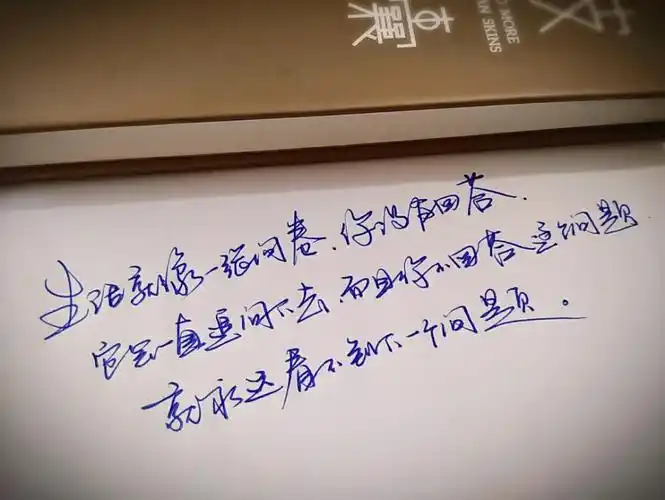 O MORE
AN SKINS
生活就像一张问卷，你没有回答，
它会一直追问下去，而且你不回答这个问题
就永远看不到下一个问题。